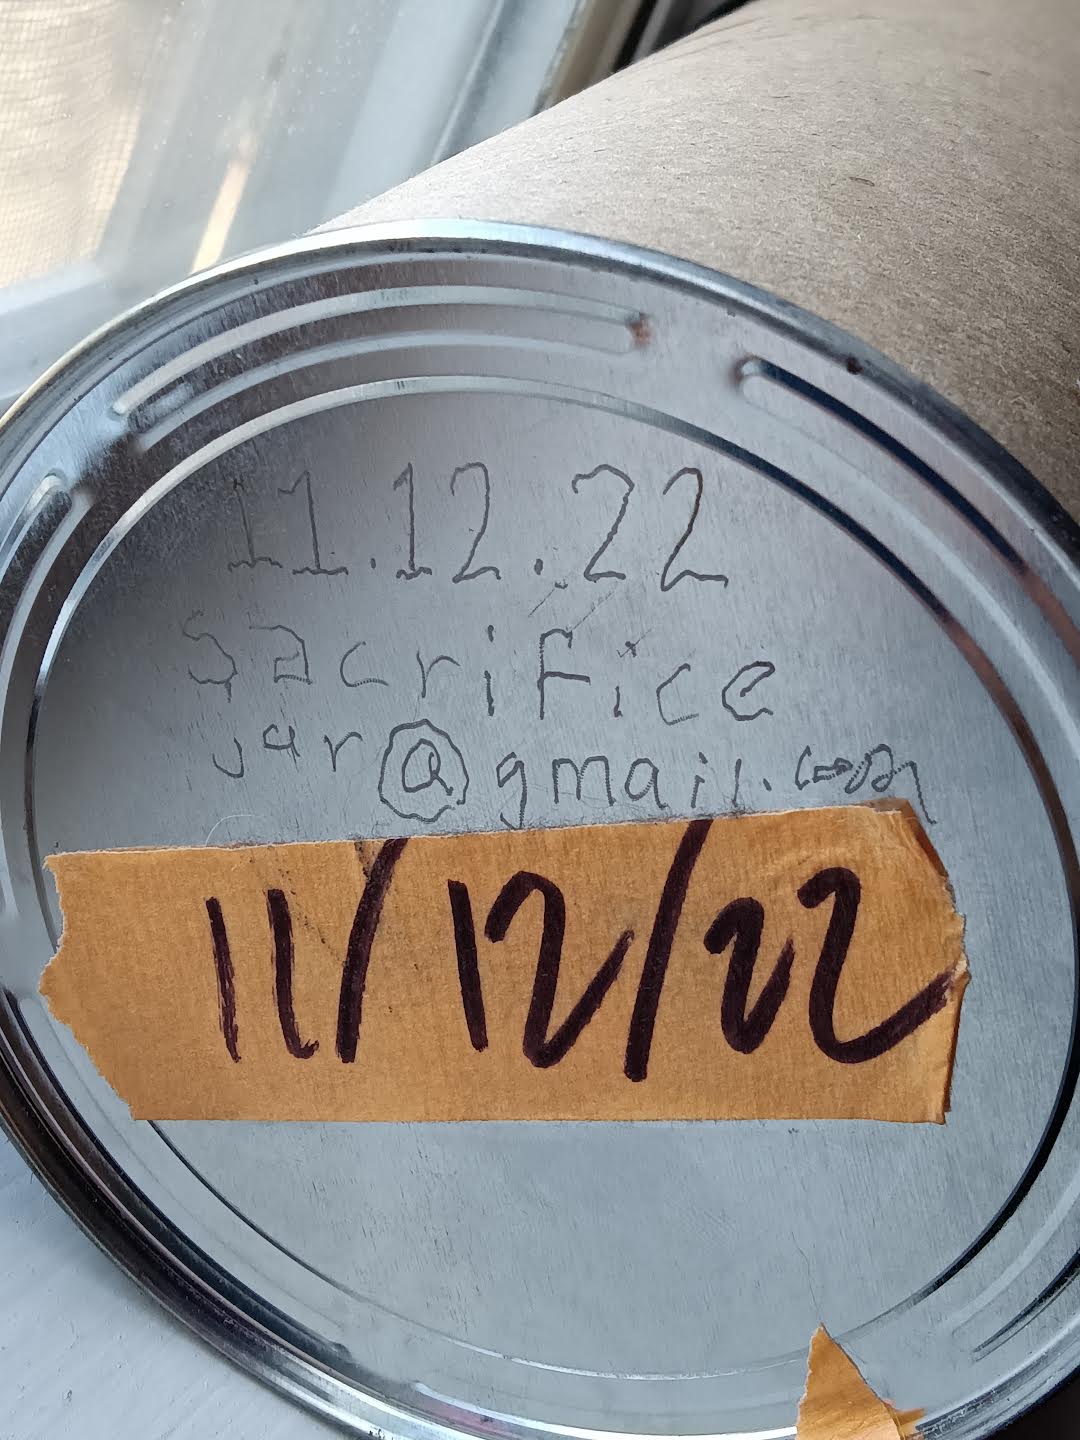 11.12.22
Sacrifice
jar@gmail.com
11/12/22